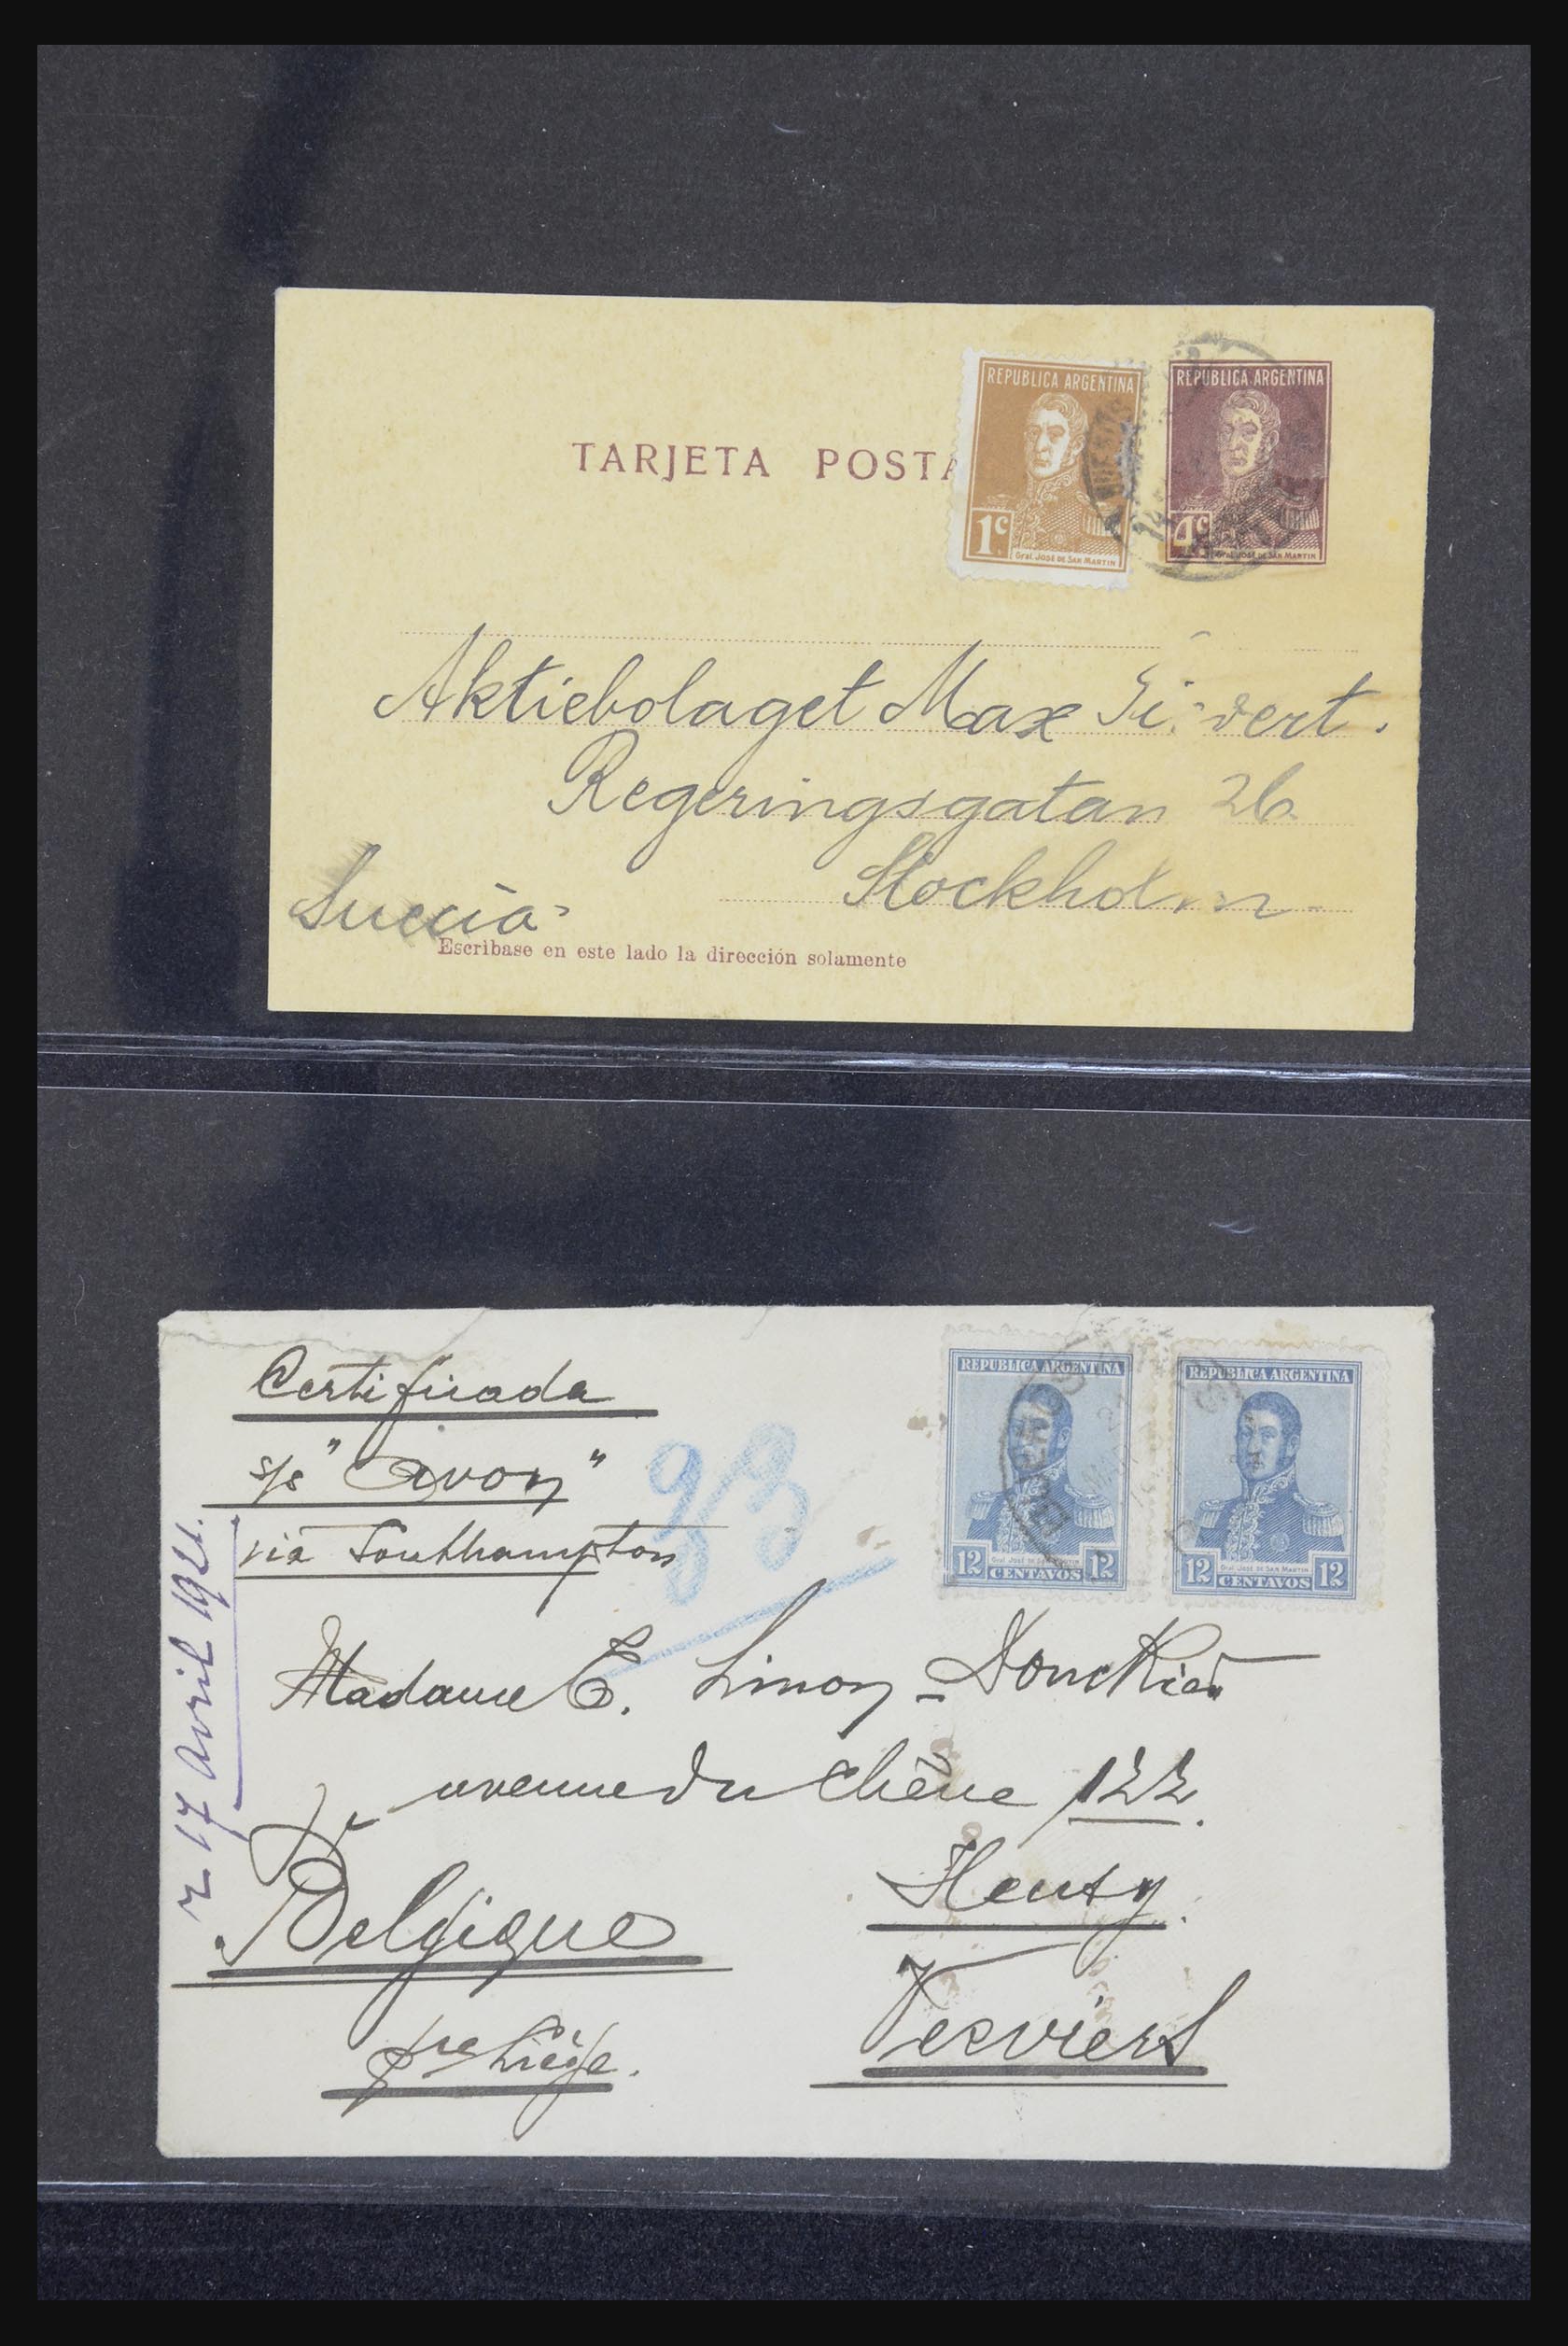 TARJETA POSTA
REPUBLICA ARGENTINA
1c
Gral. José de San Martin
REPUBLICA ARGENTINA
4c
Gral. José de San Martin
Aktiebolaget Max Sievert.
Regeringsgatan 26
Stockholm
Suecia
Escribase en este lado la dirección solamente
Certificada
s/s "Avon"
via Southampton
r 17 Avril 1921.
REPUBLICA ARGENTINA
Gral José de San Martin
12 CENTAVOS 12
REPUBLICA ARGENTINA
Gral José de San Martin
12 CENTAVOS 12
Madame E. Simon-Donckier
avenue du Chêne 122.
Heusy
Belgique
Verviers
pce Liège.